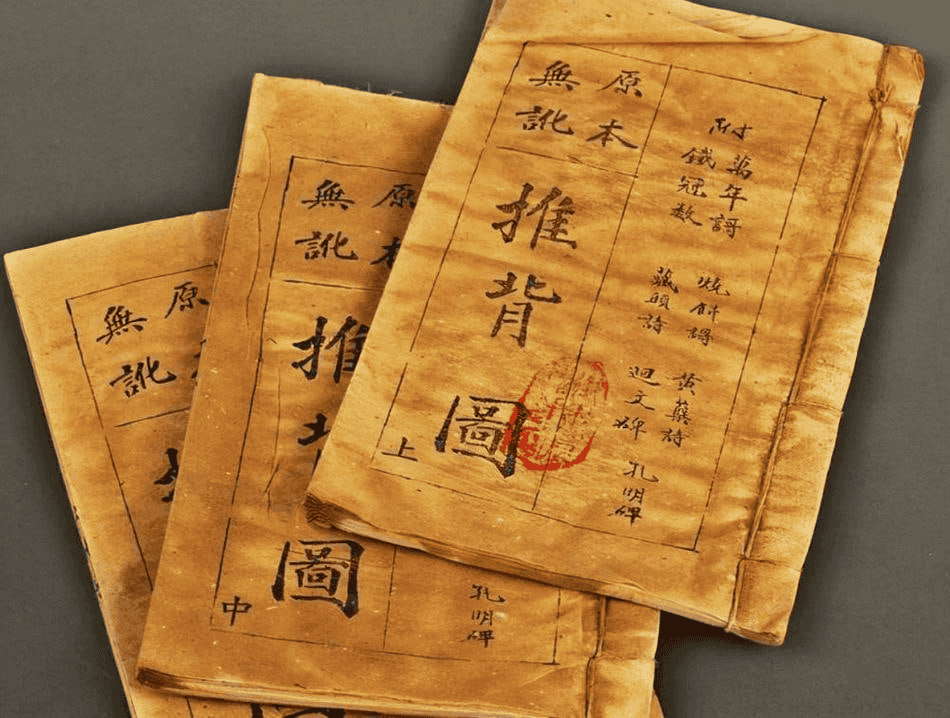 附
萬年謌
鐵冠数
燒餅謌
藏頭詩
黄蘗詩
迴文碑
孔明碑
原本
無訛
推背圖
上
孔明碑
原本
無訛
推
圖
中
原
無訛